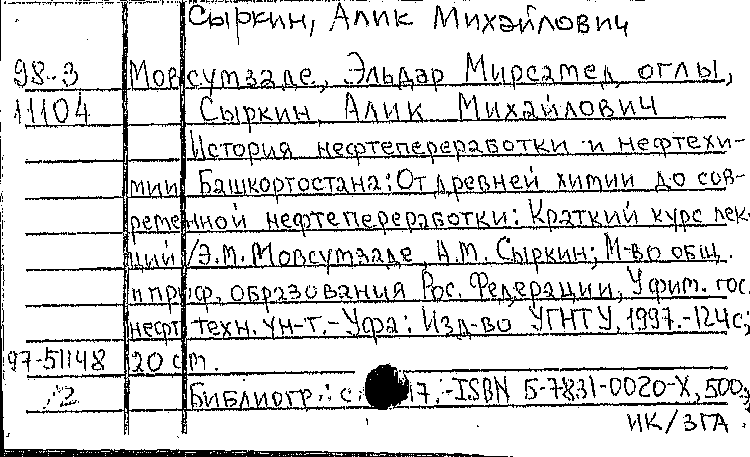 Сыркин, Алик Михайлович
98-3 Мовсумзаде, Эльдар Мирсамед оглы,
11104 Сыркин, Алик Михайлович
История нефтепереработки и нефтехи-
мии Башкортостана: От древней химии до сов-
ременной нефтепереработки: Краткий курс лек-
ций /Э.М. Мовсумзаде, А.М. Сыркин; М-во общ.
и проф. образования Рос. Федерации, Уфим. гос.
нефт. техн. ун-т.-Уфа: Изд-во УГНТУ, 1997.-124с;
97-51148 20 см.
Библиогр.: с. 17.-ISBN 5-7831-0020-X, 500
ИК/ЗГА